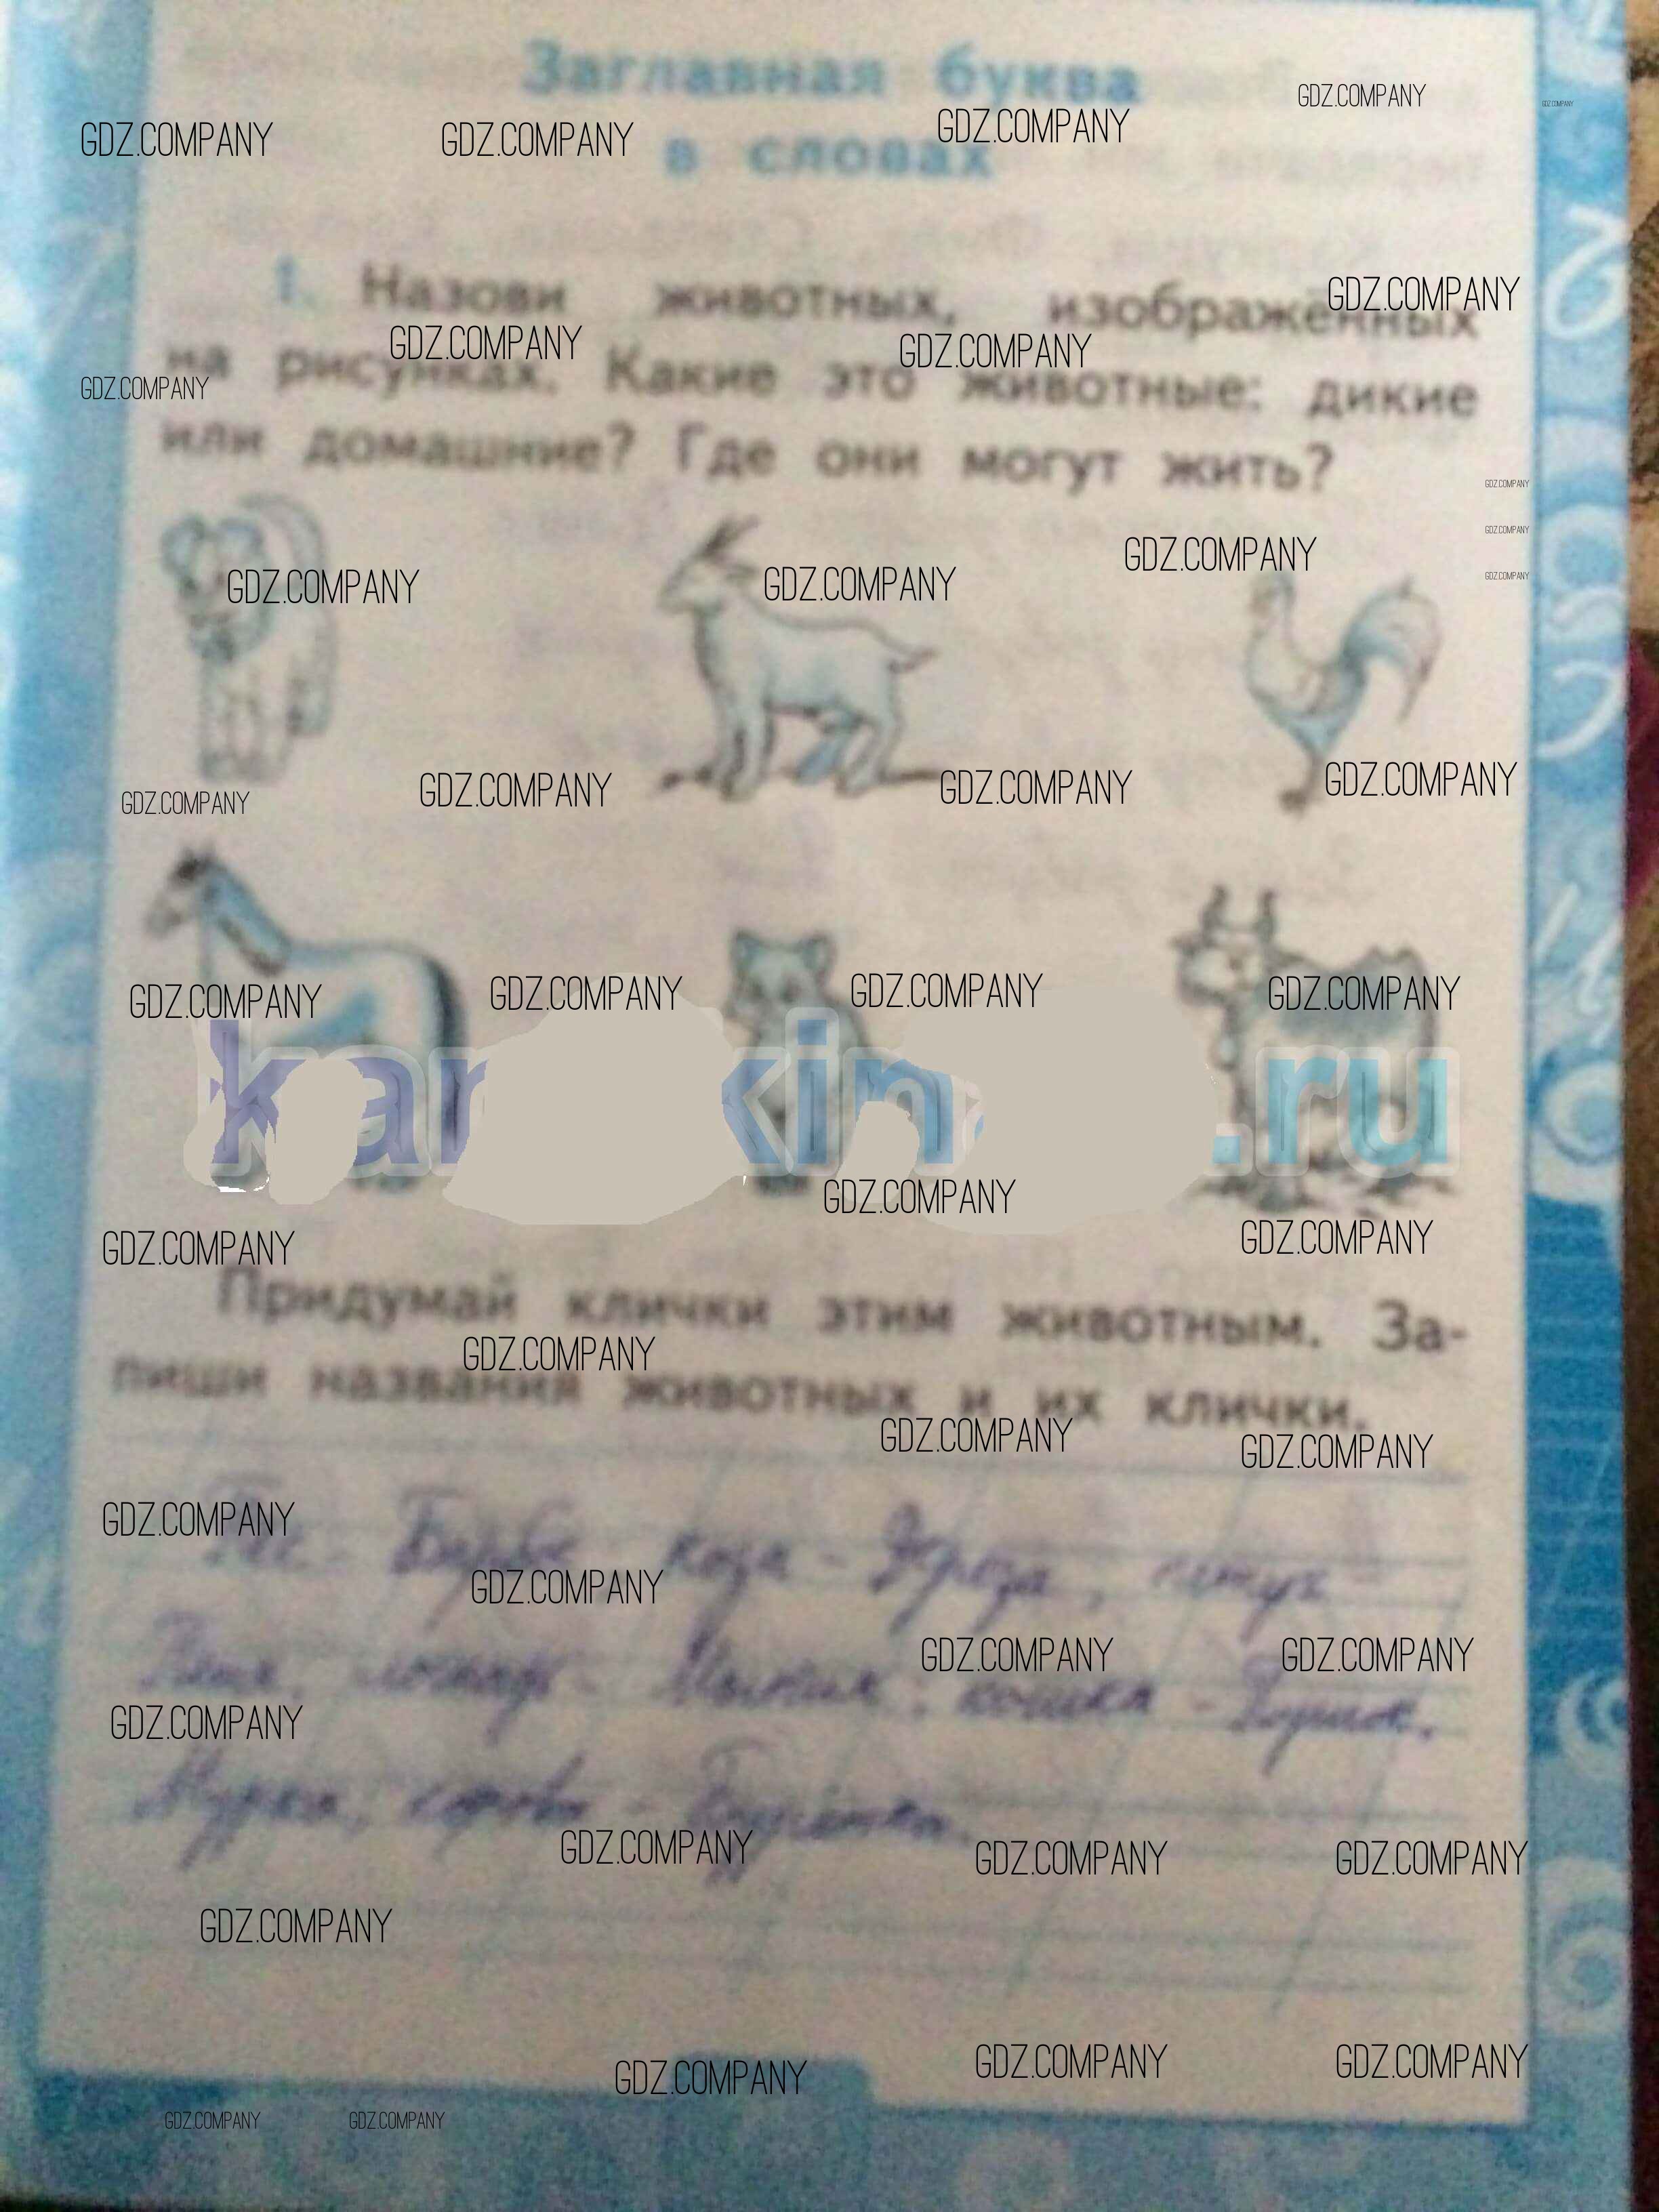 Заглавная буква
в словах
1. Назови животных, изображённых
на рисунках. Какие это животные: дикие
или домашние? Где они могут жить?
Придумай клички этим животным. За-
пиши названия животных и их клички.
коза - петух -
Петя, лошадь - кошка -
Мурка, корова - Бурёнка.
GDZ.COMPANY